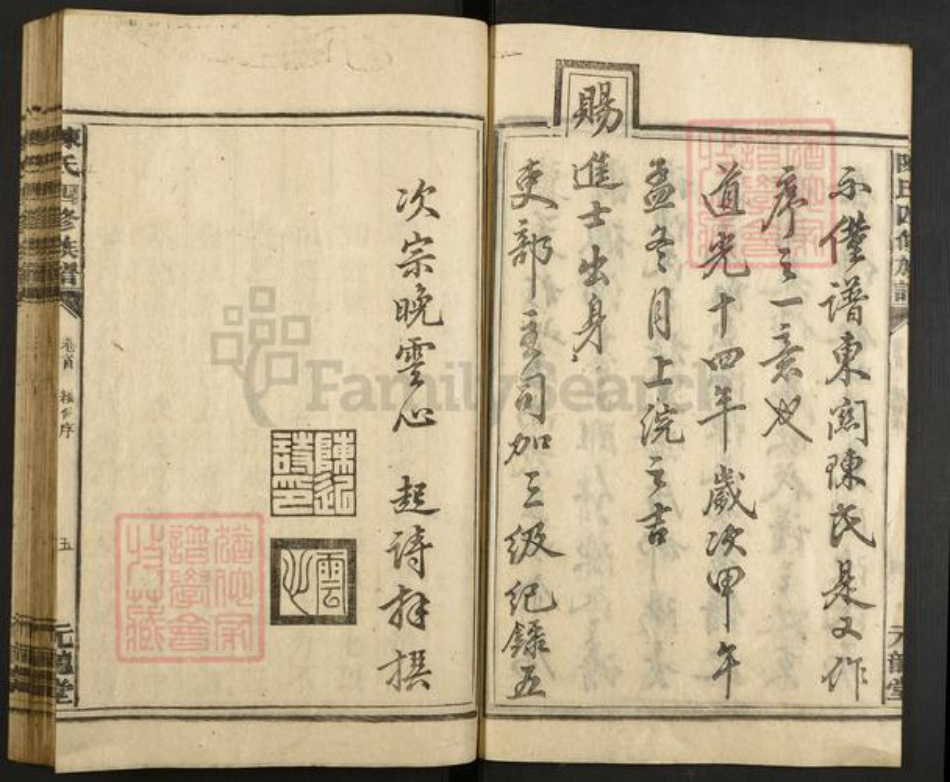 賜
示僅譜東關陳氏是又作
序之一意也
道光十四年歲次甲午
孟冬月上浣之吉
進士出身
吏部主司加三級紀錄五
次宗晚雲心 起詩拜撰
陳起詩印
雲心
陳氏四修族譜
卷首
五
元龍堂
陳氏四修族譜
元龍堂
FamilySearch